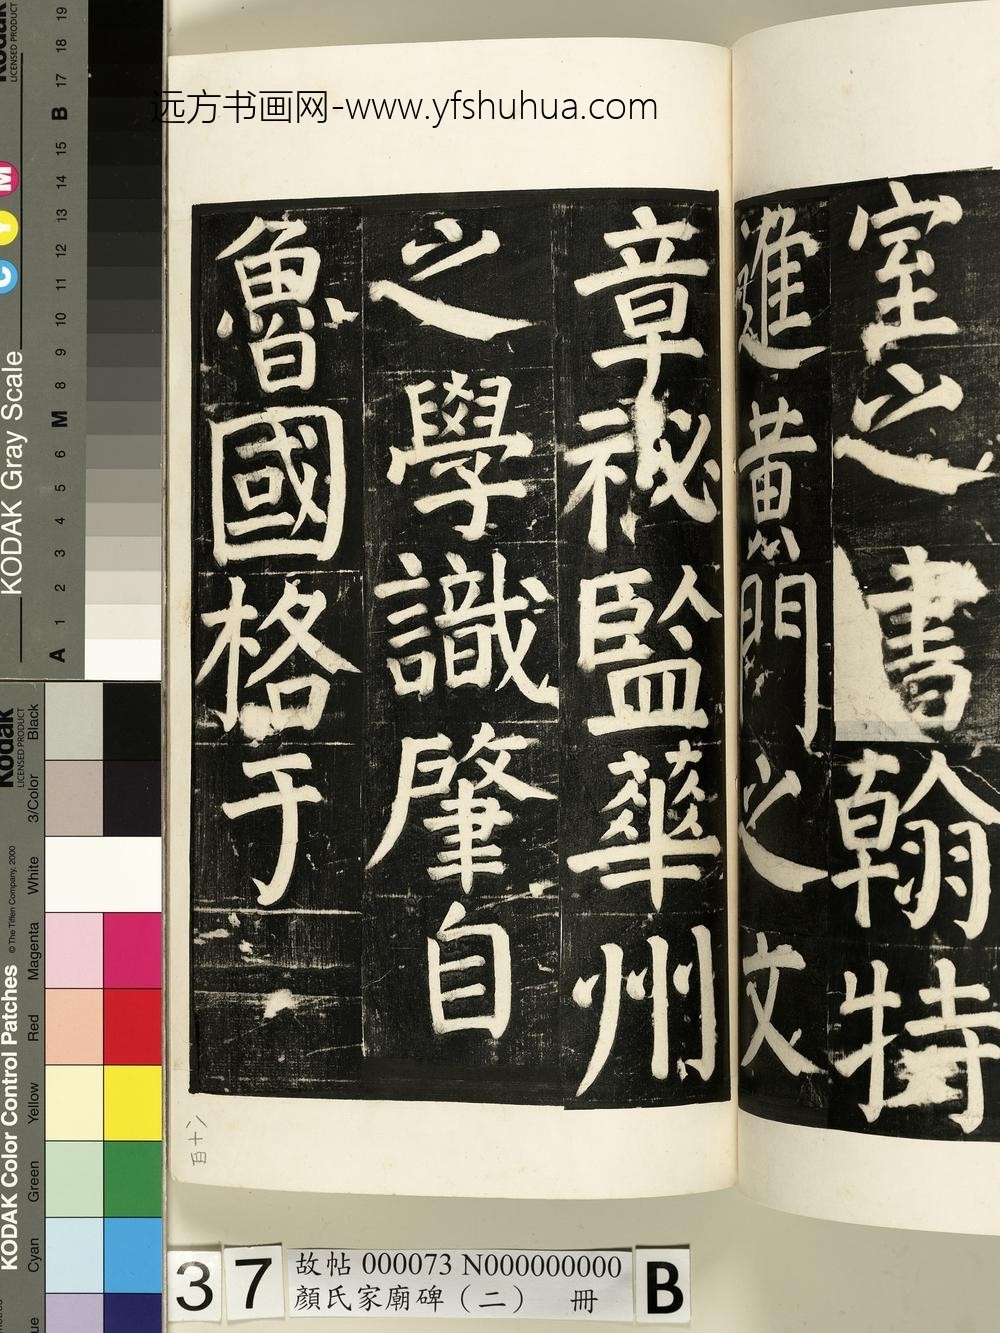 远方书画网-www.yfshuhua.com
室之書翰特
進黃門之文
章祕監華州
之學識肇自
魯國格于
八十四
37
故帖 000073 N000000000
顏氏家廟碑（二） 冊
B
KODAK Gray Scale
C Y M
Kodak
LICENSED PRODUCT
A 1 2 3 4 5 6 M 8 9 10 11 12 13 14 15 B 17 18 19
KODAK Color Control Patches
© The Tiffen Company, 2000
Kodak
LICENSED PRODUCT
Cyan Green Yellow Red Magenta White 3/Color Black